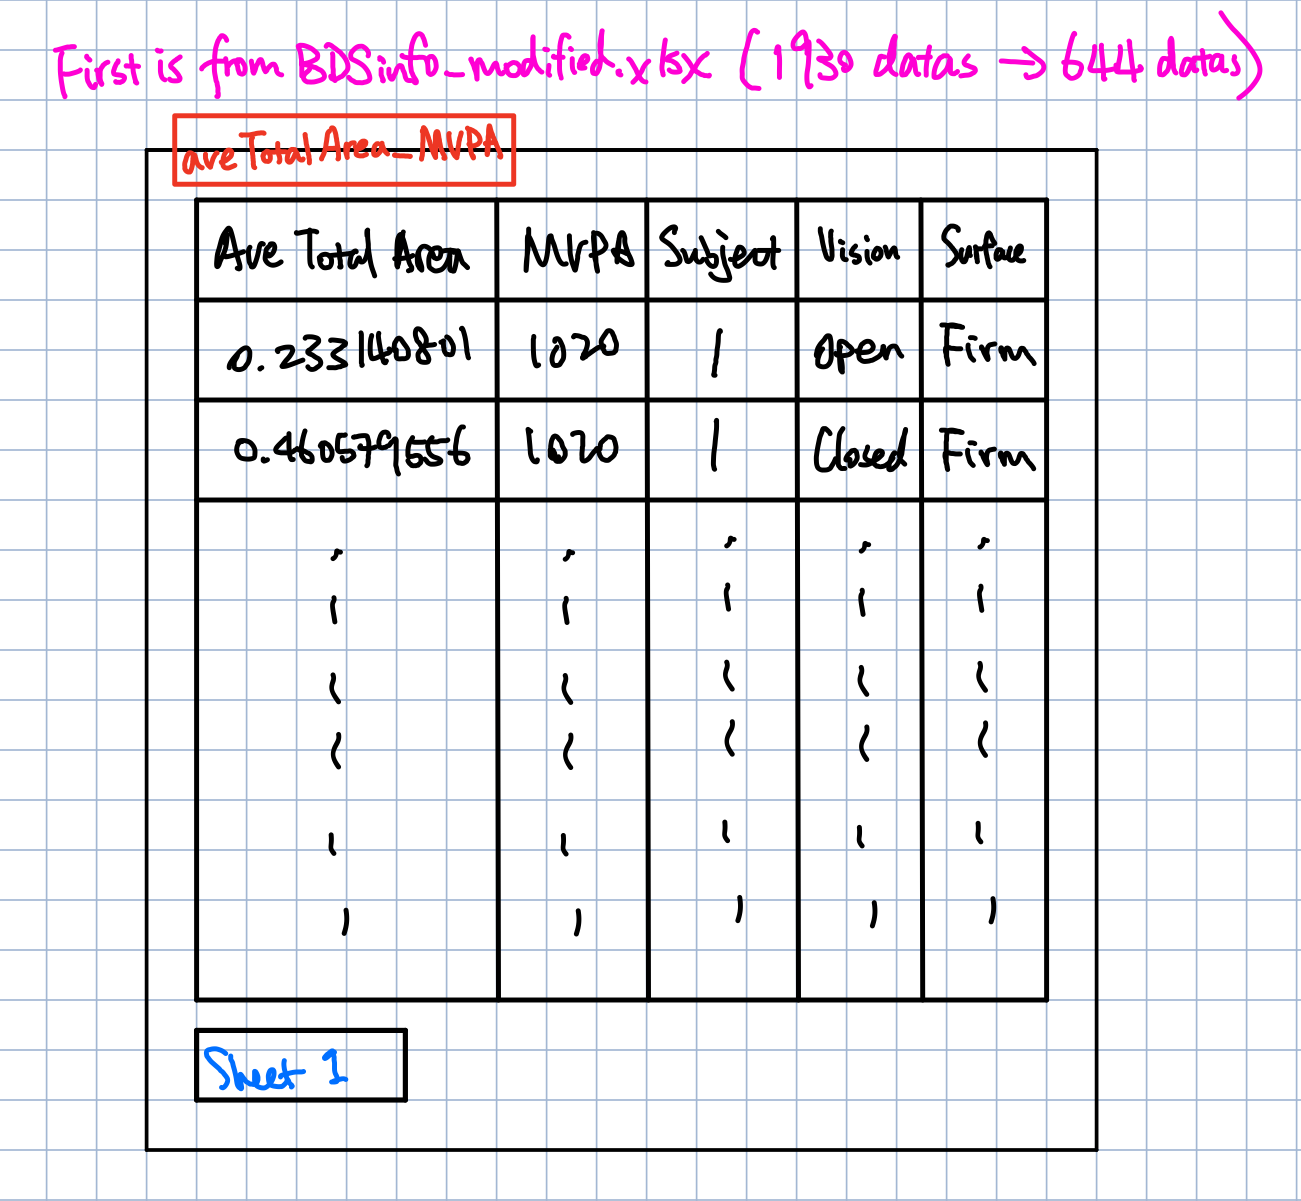 First is from BDSinfo_modified.xlsx (1930 datas → 644 datas)
aveTotalArea_MVPA
Ave Total Area MVPA Subject Vision Surface
0.233140801 1020 1 Open Firm
0.460579656 1020 1 Closed Firm
Sheet 1